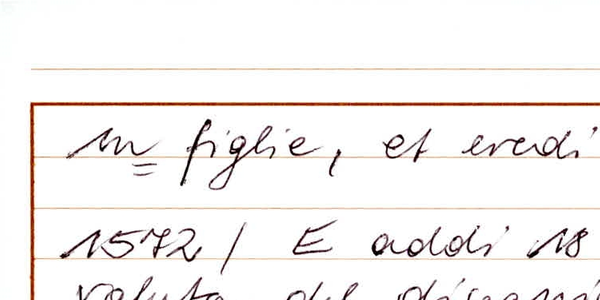 figlie, et eredi
1572/ E addi 18
valuta del